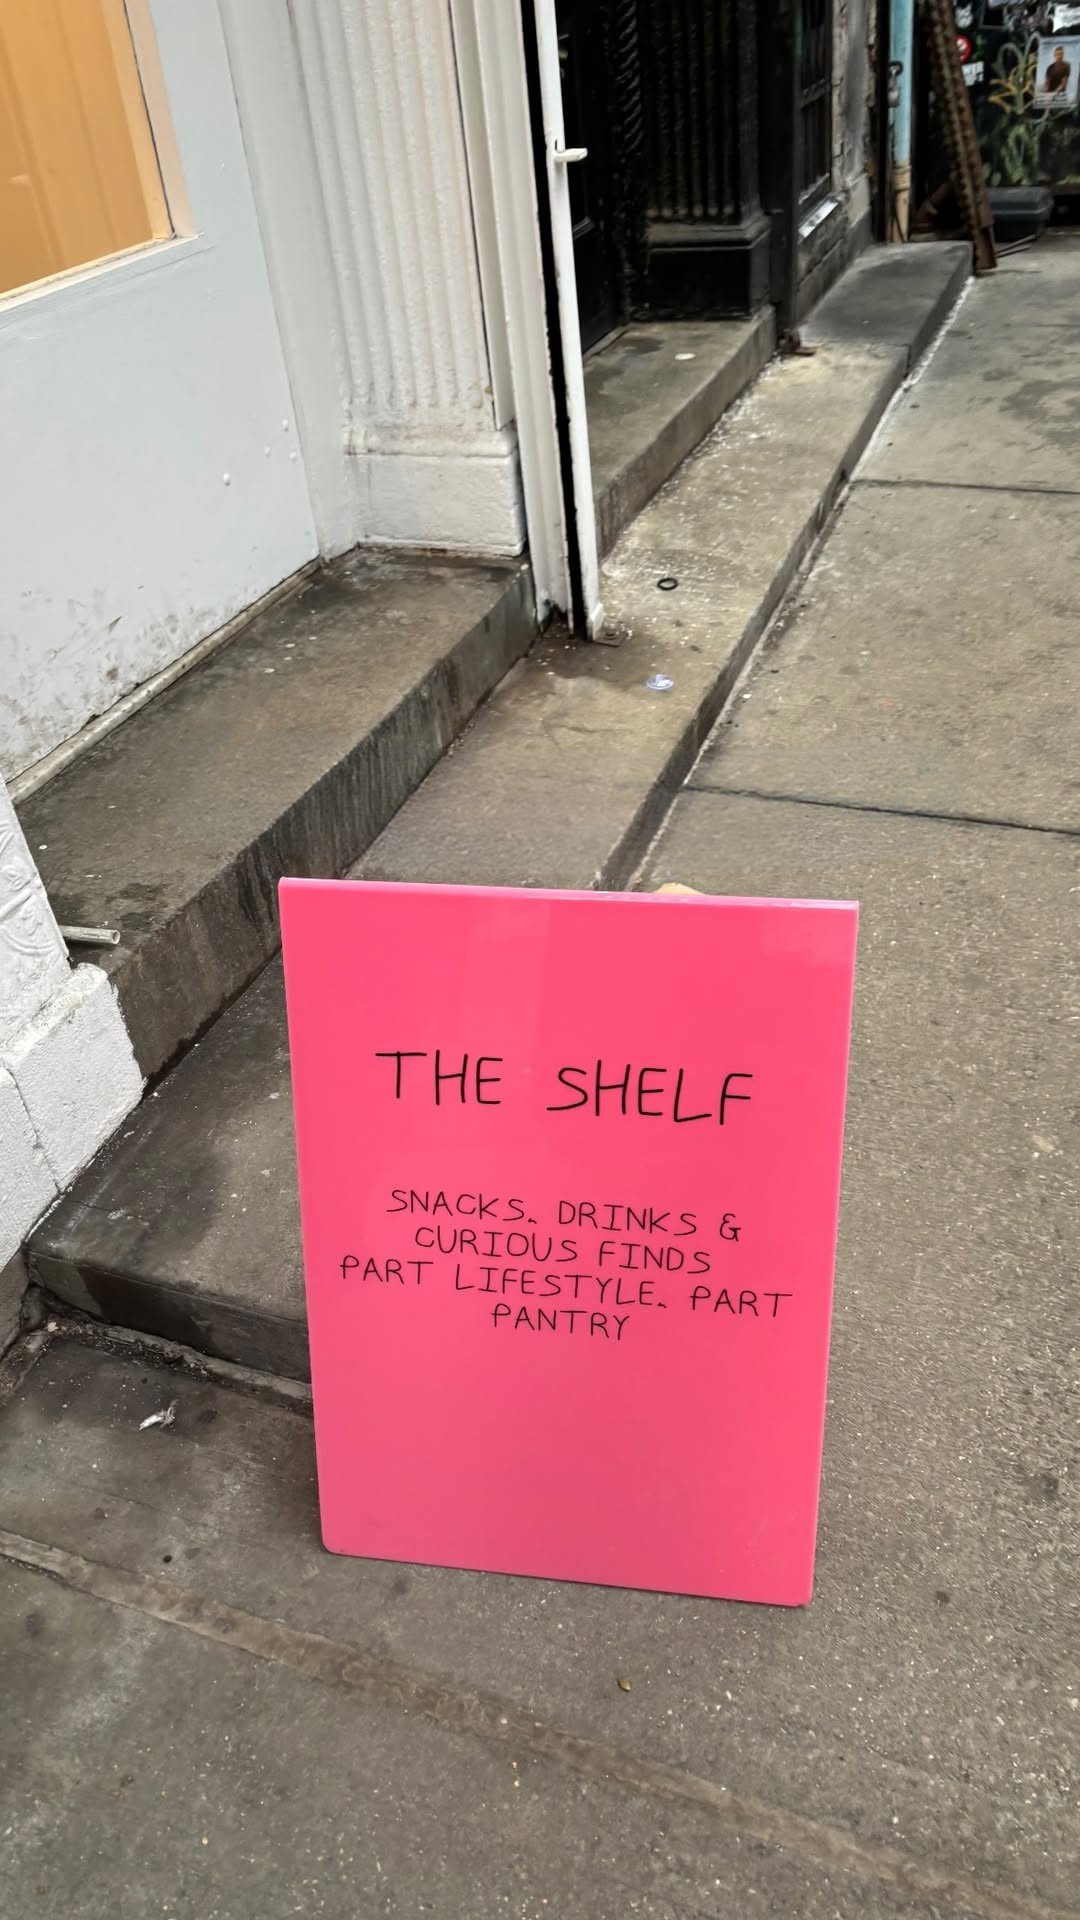 THE SHELF
SNACKS. DRINKS &
CURIOUS FINDS
PART LIFESTYLE. PART
PANTRY